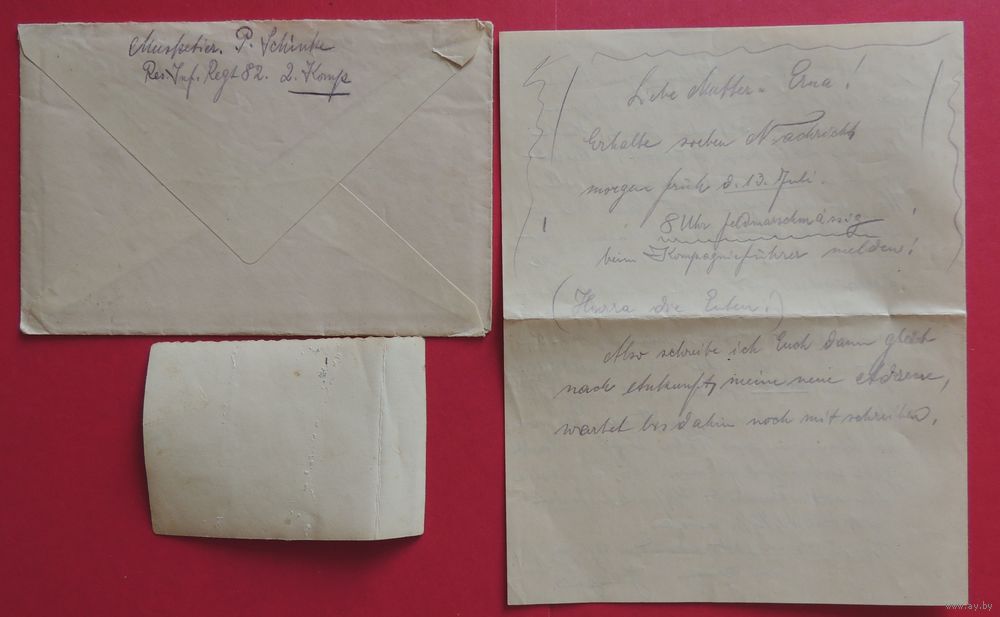 Musketier. P. Schinke
Res. Inf. Regt 82. 2. Komp
Liebe Mutter u. Erna!
Erhalte soeben Nachricht
morgen früh d. 13. Juli.
8 Uhr feldmarschmässig
beim Kompagnieführer melden!
(Hurra die Enten!)
Also schreibe ich Euch dann gleich
nach Ankunft, meine neue Adresse,
wartet bis dahin noch mit schreiben.
www.ay.by